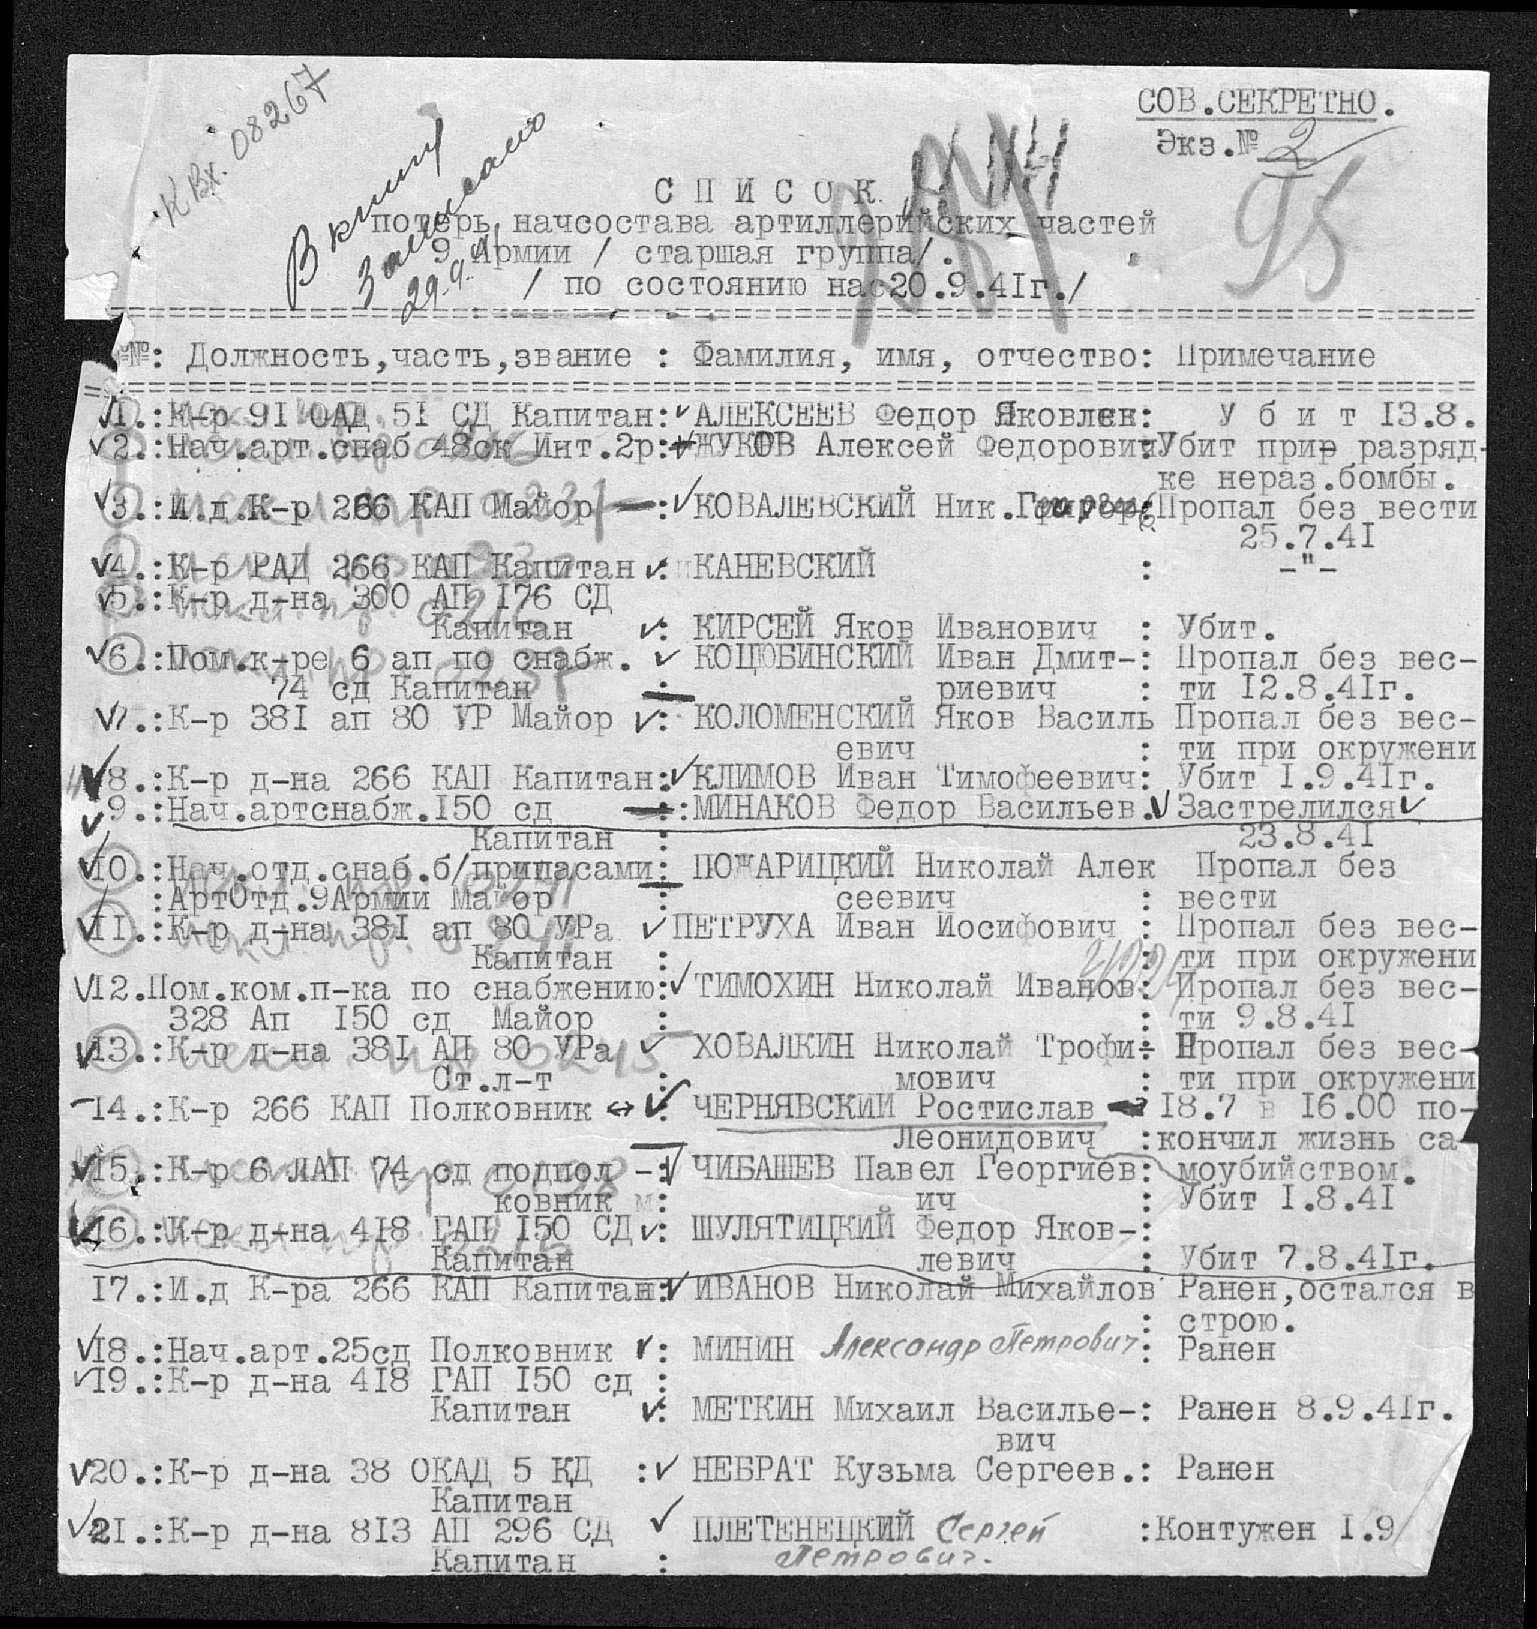 К Вх. 08267
В книгу
записано
29.9.41
СОВ.СЕКРЕТНО.
Экз.№ 2
95
С П И С О К
потерь начсостава артиллерийских частей
9 Армии / старшая группа/.
/ по состоянию на 20.9.41г./
№№: Должность,часть,звание : Фамилия, имя, отчество: Примечание
1.:К-р 91 ОАД 51 СД Капитан: АЛЕКСЕЕВ Федор Яковлев: У б и т 13.8.
2.:Нач.арт.снаб 48ск Инт.2р: ЖУКОВ Алексей Федорович:Убит при разряд-
ке нераз.бомбы.
3.:И.д.К-р 266 КАП Майор : КОВАЛЕВСКИЙ Ник. :Пропал без вести
25.7.41
4.:К-р РАД 266 КАП Капитан : КАНЕВСКИЙ : -"-
5.:К-р д-на 300 АП 176 СД
Капитан : КИРСЕЙ Яков Иванович : Убит.
6.:Пом.к-ре 6 ап по снабж. КОЦЮБИНСКИЙ Иван Дмит-: Пропал без вес-
74 сд Капитан : риевич : ти 12.8.41г.
7.:К-р 381 ап 80 УР Майор : КОЛОМЕНСКИЙ Яков Василь Пропал без вес-
евич : ти при окружени
8.:К-р д-на 266 КАП Капитан: КЛИМОВ Иван Тимофеевич: Убит 1.9.41г.
9.:Нач.артснабж.150 сд : МИНАКОВ Федор Васильев. Застрелился
Капитан : 23.8.41
10.:Нач.отд.снаб.б/припасами: ПОЖАРИЦКИЙ Николай Алек Пропал без
:АртОтд.9Армии Майор : сеевич : вести
11.:К-р д-на 381 ап 80 УРа ПЕТРУХА Иван Иосифович : Пропал без вес-
Капитан : : ти при окружени
12.Пом.ком.п-ка по снабжению: ТИМОХИН Николай Иванов: Пропал без вес-
328 Ап 150 сд Майор : : ти 9.8.41
13.:К-р д-на 381 АП 80 УРа ХОВАЛКИН Николай Трофи- Пропал без вес-
Ст.л-т : мович : ти при окружени
14.:К-р 266 КАП Полковник : ЧЕРНЯВСКИЙ Ростислав 18.7 в 16.00 по-
Леонидович :кончил жизнь са
15.:К-р 6 ЛАП 74 сд подпол -: ЧИБАШЕВ Павел Георгиев: моубийством.
ковник : ич : Убит 1.8.41
16.:К-р д-на 418 ГАП 150 СД : ШУЛЯТИЦКИЙ Федор Яков-:
Капитан левич : Убит 7.8.41г.
17.:И.д К-ра 266 КАП Капитан: ИВАНОВ Николай Михайлов Ранен,остался в
: строю.
18.:Нач.арт.25сд Полковник : МИНИН Александр Петрович : Ранен
19.:К-р д-на 418 ГАП 150 сд :
Капитан : МЕТКИН Михаил Василье-: Ранен 8.9.41г.
вич
20.:К-р д-на 38 ОКАД 5 КД : НЕБРАТ Кузьма Сергеев.: Ранен
Капитан
21.:К-р д-на 813 АП 296 СД ПЛЕТЕНЕЦКИЙ Сергей :Контужен 1.9
Капитан : Петрович.